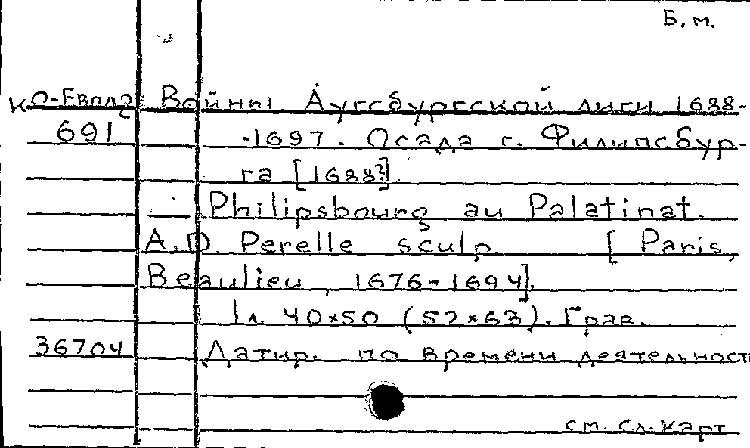 Б. м.
К О-Евпл2 Войны Аугсбургской лиги 1688-
691 -1697. Осада г. Филипсбур-
га [1688?].
Philipsbourg au Palatinat.
A. D. Perelle sculp [Paris,
Beaulieu, 1676-1694].
1л. 40×50 (52×63). Грав.
36704 Датир. по времени деятельност
см. сл. карт